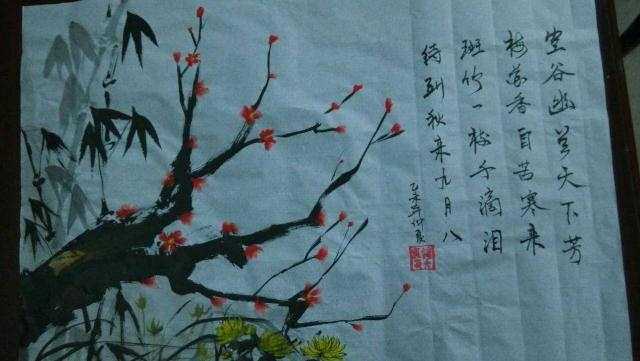 空谷幽兰天下芳
梅花香自苦寒来
斑竹一枝千滴泪
待到秋来九月八
乙未年仲夏